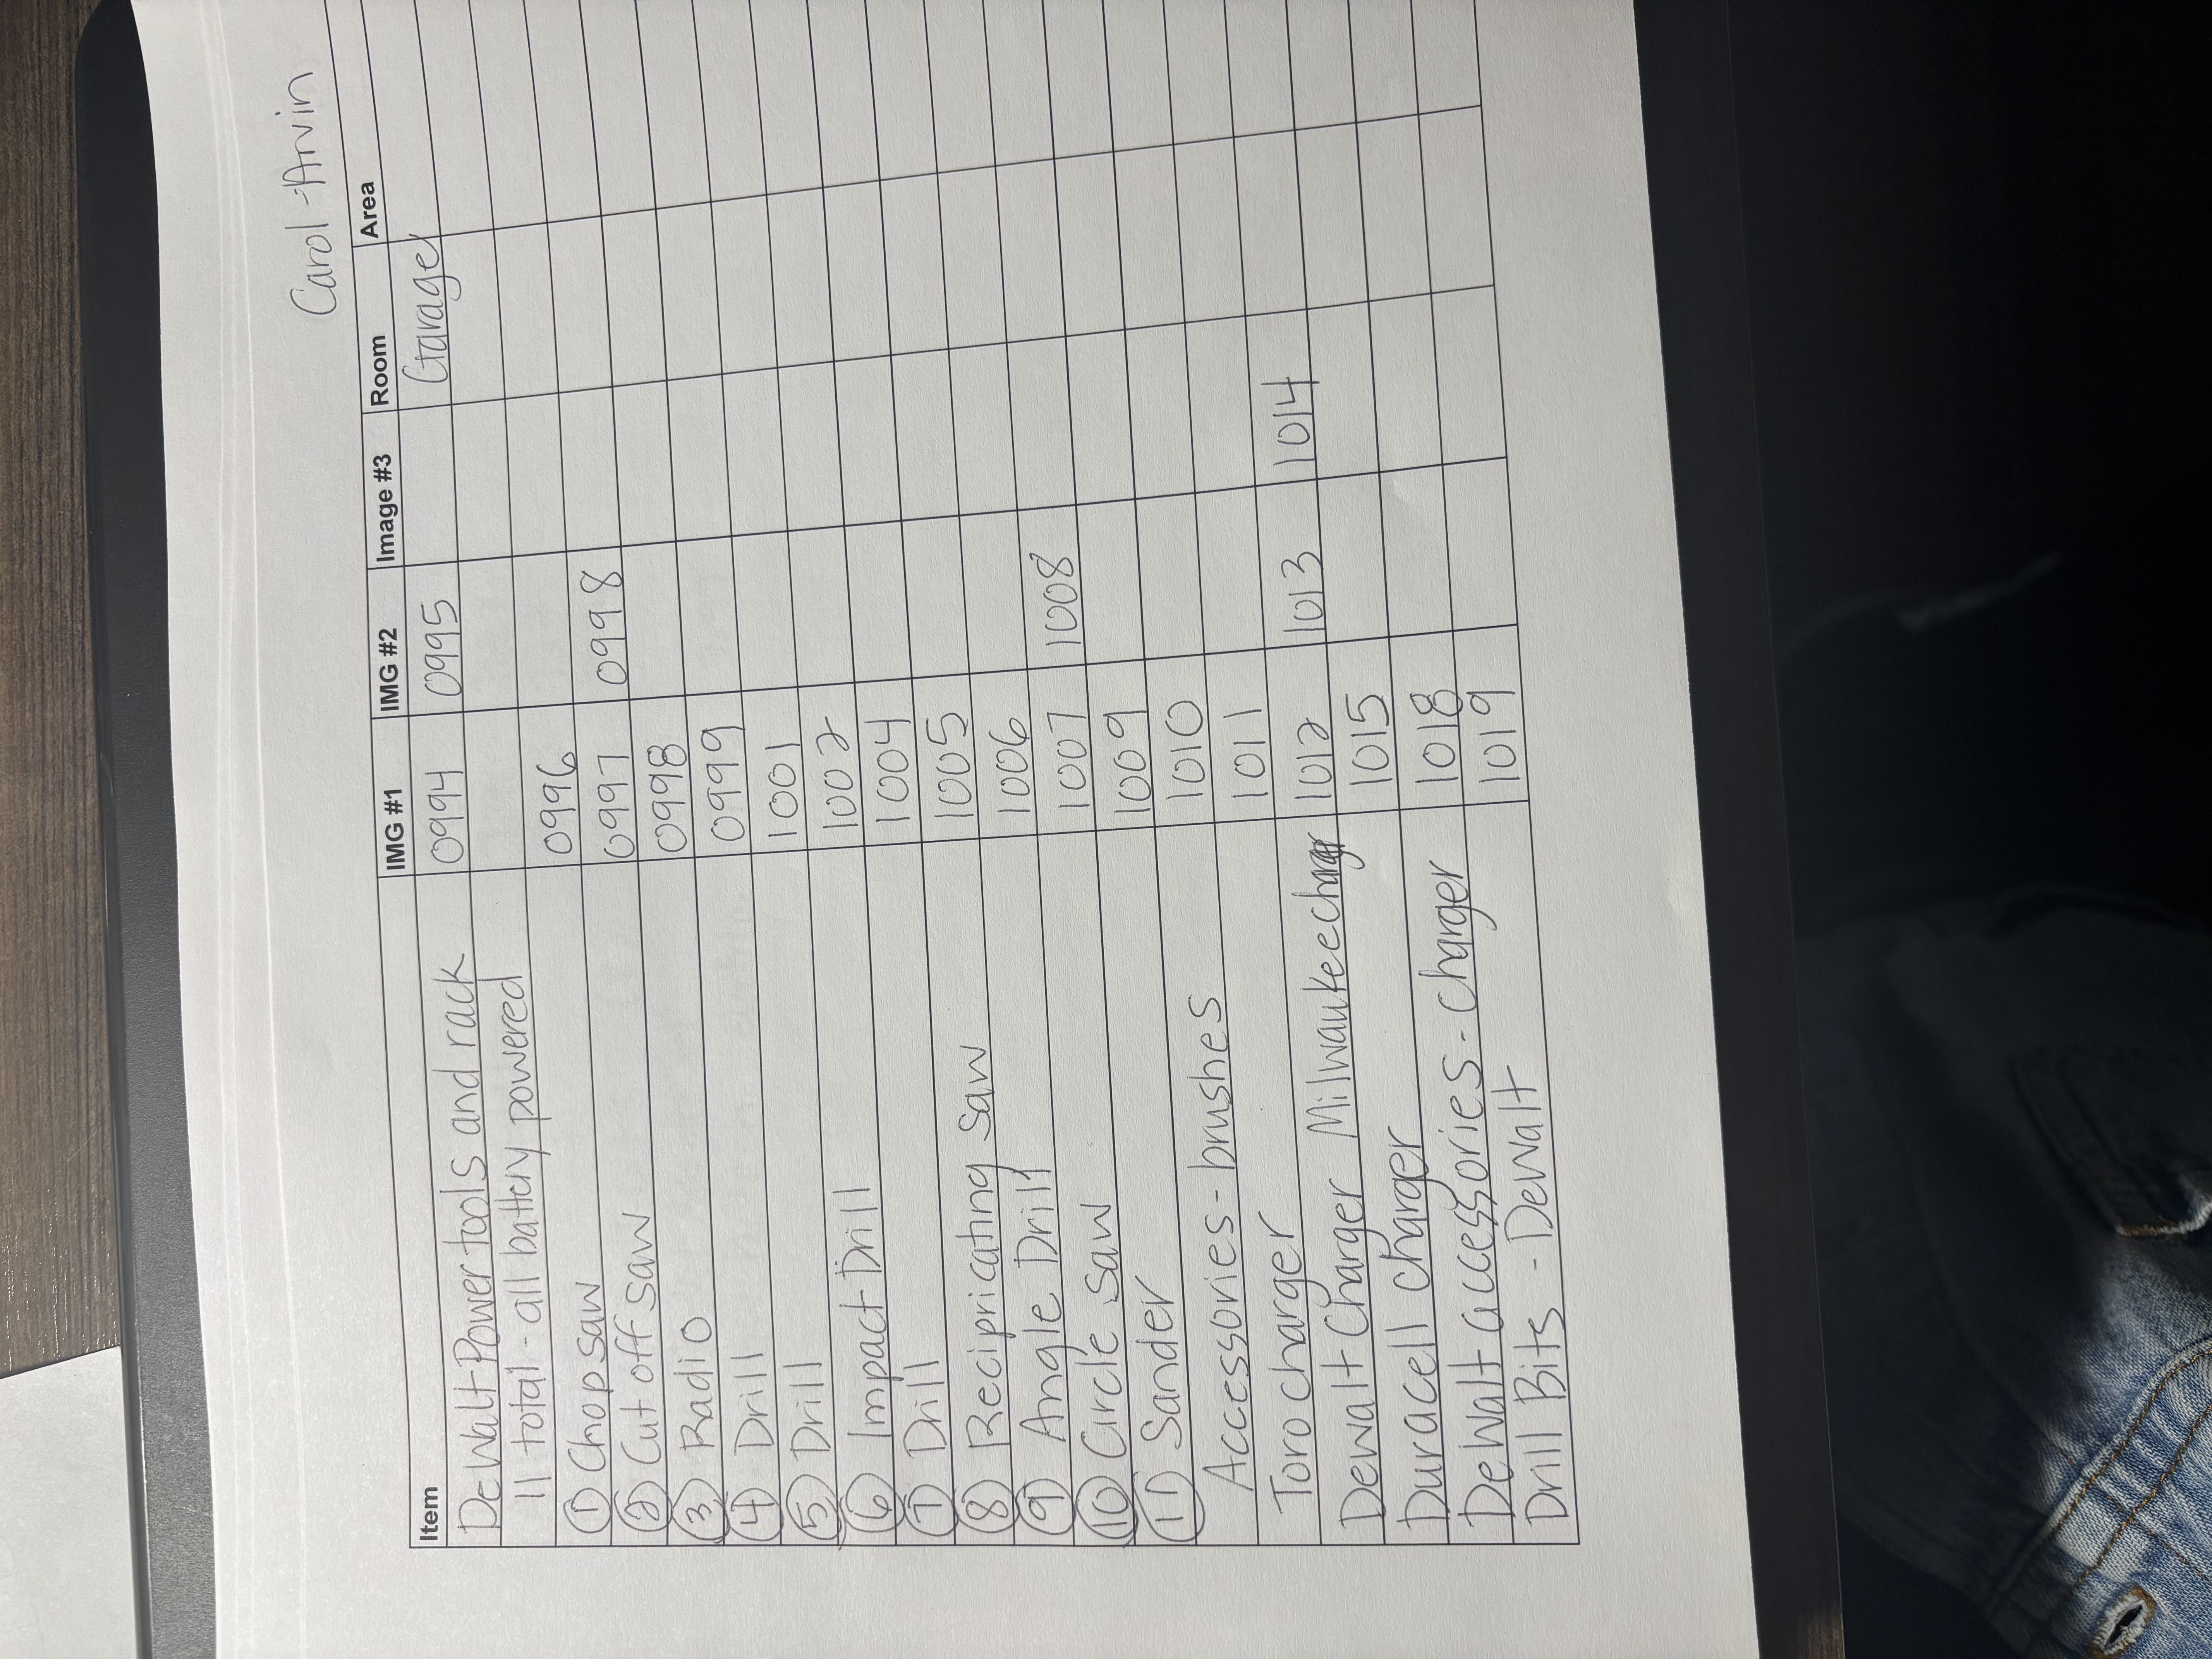 Carol Arvin
Item IMG #1 IMG #2 Image #3 Room Area
DeWalt Power tools and rack 0994 0995 Garage
11 total - all battery powered
① Chop saw 0996
② Cut off saw 0997 0998
③ Radio 0998
④ Drill 0999
⑤ Drill 1001
⑥ Impact Drill 1002
⑦ Drill 1004
⑧ Recipricating saw 1005
⑨ Angle Drill 1006
⑩ Circle saw 1007 1008
⑪ Sander 1009
Accessories - brushes 1010
Toro charger 1011
Dewalt Charger Milwaukee charger 1012 1013 1014
Duracell charger 1015
DeWalt accessories - charger 1018
Drill Bits - Dewalt 1019